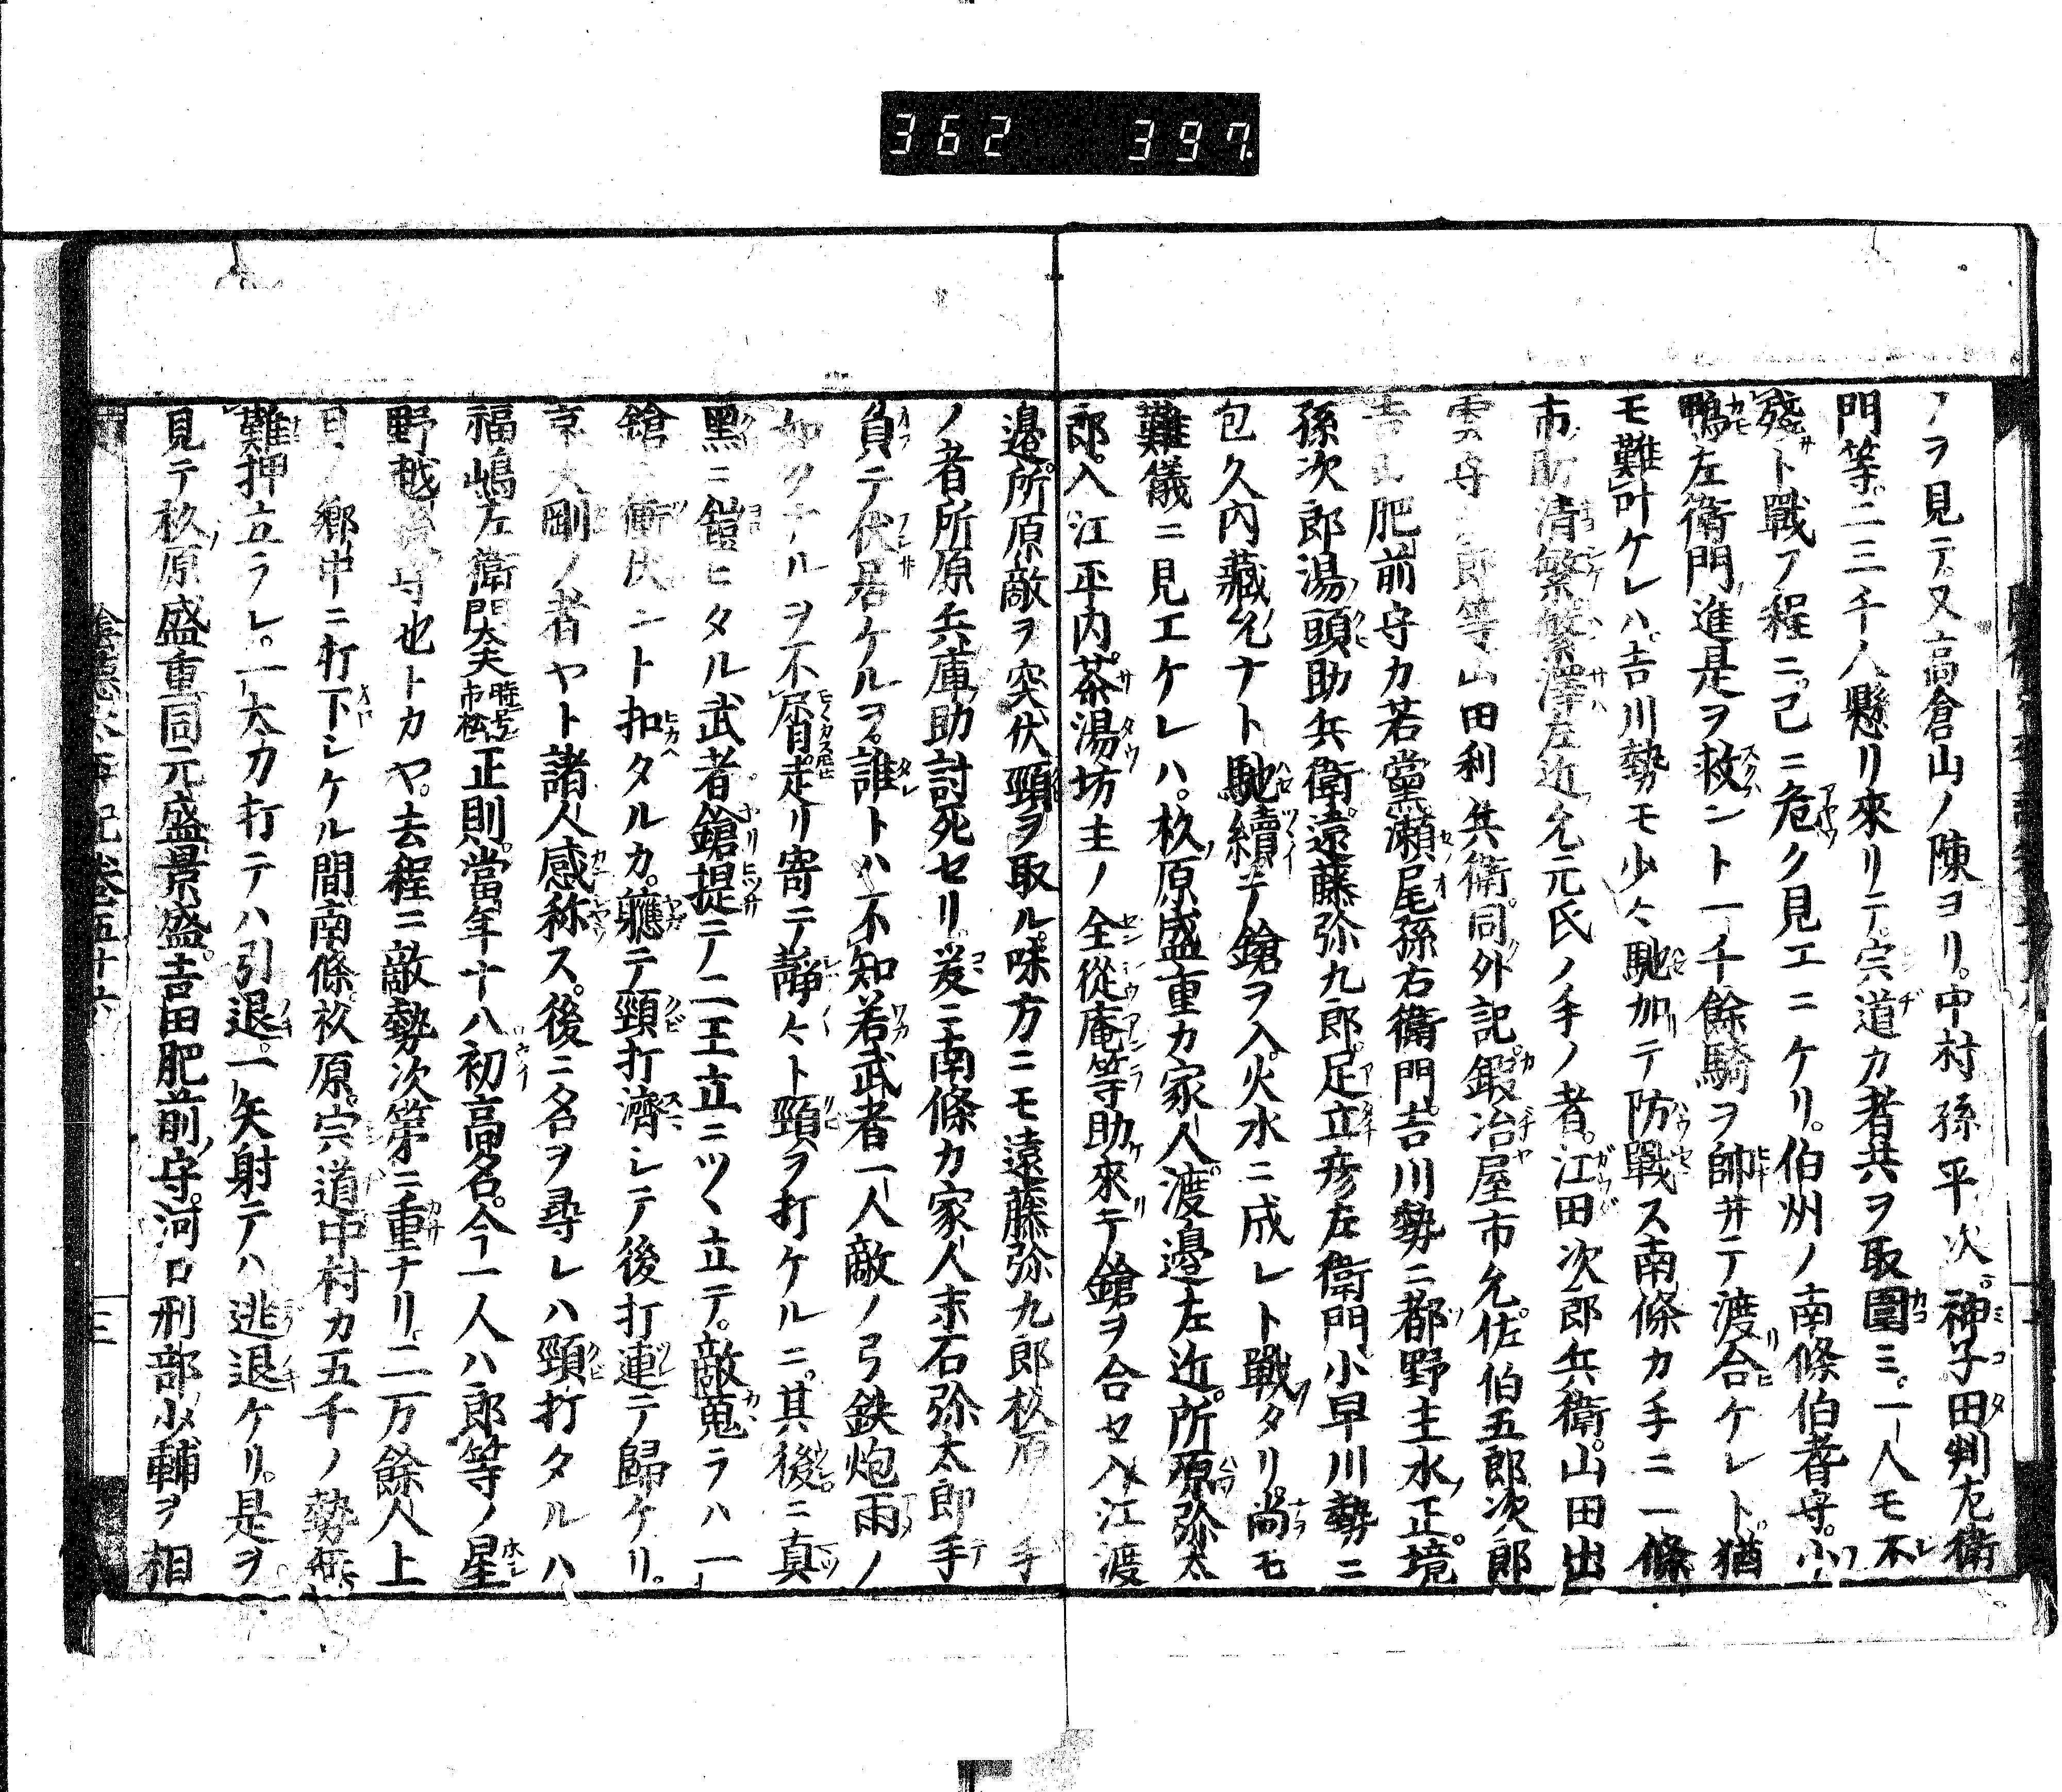 362 397
ノヲ見テ。又高倉山ノ陳ヨリ。中村孫平次。神子田判左衛
門等。二三千人懸リ來リテ。宍道カ者共ヲ取圍ミ。一人モ不
殘ト戰フ程ニ。己ニ危ク見エニケリ。伯州ノ南條伯耆守。小
鴨左衛門進是ヲ救ント一千餘騎ヲ帥井テ渡合ケレト。猶
モ難叶ケレハ。吉川勢モ少々馳加テ防戰ス南條カ手ニ一條
市助清繁繁澤左近允元氏ノ手ノ者。江田次郎兵衛。山田出
雲守 郎等山田利兵衛。同外記。鍛冶屋市允。佐伯五郎次郎
吉山肥前守カ若黨瀬尾孫右衛門。吉川勢ニ都野主水正。境
孫次郎湯頭助兵衛。遠藤弥九郎。足立彦左衛門小早川勢ニ
包久内藏允ナト馳續テ鎗ヲ入火水ニ成レト戰タリ。尚モ
難儀ニ見エケレハ。杦原盛重カ家人渡邉左近。所原弥太
郎。入江平内。茶湯坊主ノ全從庵等助來テ鎗ヲ合セ入江渡
邉所原敵ヲ突伏頸ヲ取ル。味方ニモ遠藤弥九郎杦原ノ手
ノ者所原兵庫助討死セリ。爰ニ南條カ家人末石弥太郎手
負テ伏居ケルヲ。誰トハ不知若武者一人敵ノ弓鉄炮雨ノ
如クナルヲ不屑走リ寄テ靜々ト頸ヲ打ケルニ。其後ニ真
黑ニ鎧ヒタル武者鎗提テ二王立ニツヽ立テ。敵蒐ラハ一
鎗ニ衝伏ント扣タルカ。軈テ頸打濟シテ後打連テ歸ケリ。
哀大剛ノ者ヤト諸人感称ス。後ニ名ヲ尋レハ頸打タルハ
福嶋左衛門大夫時号市松正則。當年十八初高名。今一人ハ郎等ノ星
野越後守也トカヤ。去程ニ敵勢次第ニ重ナリ。二万餘人上
見ノ郷中ニ打下シケル間南條。杦原。宍道中村カ五千ノ勢
難押立ラレ。一太刀打テハ引退。一矢射テハ逃退ケリ。是ヲ
見テ杦原盛重同元盛景盛。吉田肥前守。河口刑部少輔ヲ相
陰德太平記卷五十六
三